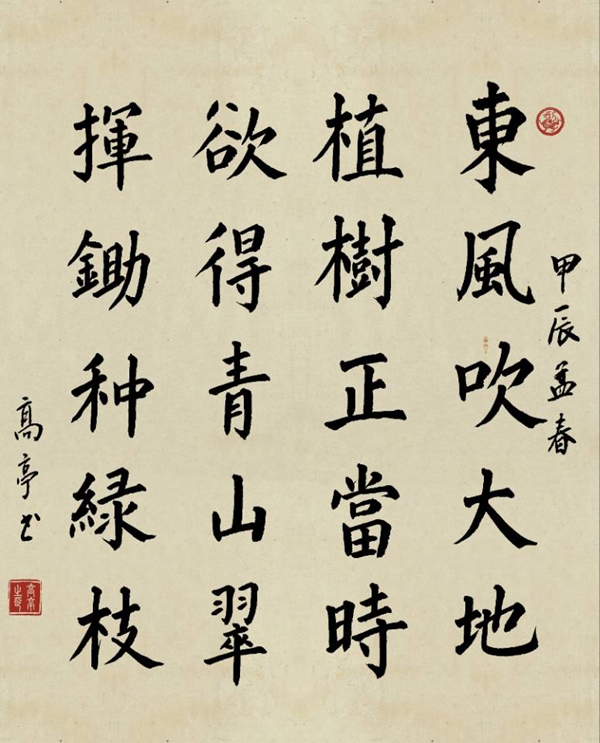 甲辰孟春
東風吹大地
植樹正當時
欲得青山翠
揮鋤种緑枝
高亭书